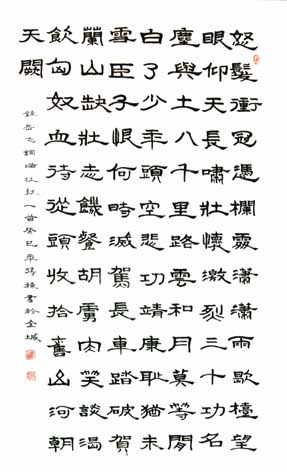 怒髮衝冠憑欄處瀟瀟雨歇檯望
眼仰天長嘯壯懷激烈三十功名
塵與土八千里路雲和月莫等閒
白了少年頭空悲切靖康恥猶未
雪臣子恨何時滅駕長車踏破賀
蘭山缺壯志饑餐胡虜肉笑談渴
飲匈奴血待從頭收拾舊山河朝
天闕
錄岳飛詞滿江紅一首癸巳年書於金城